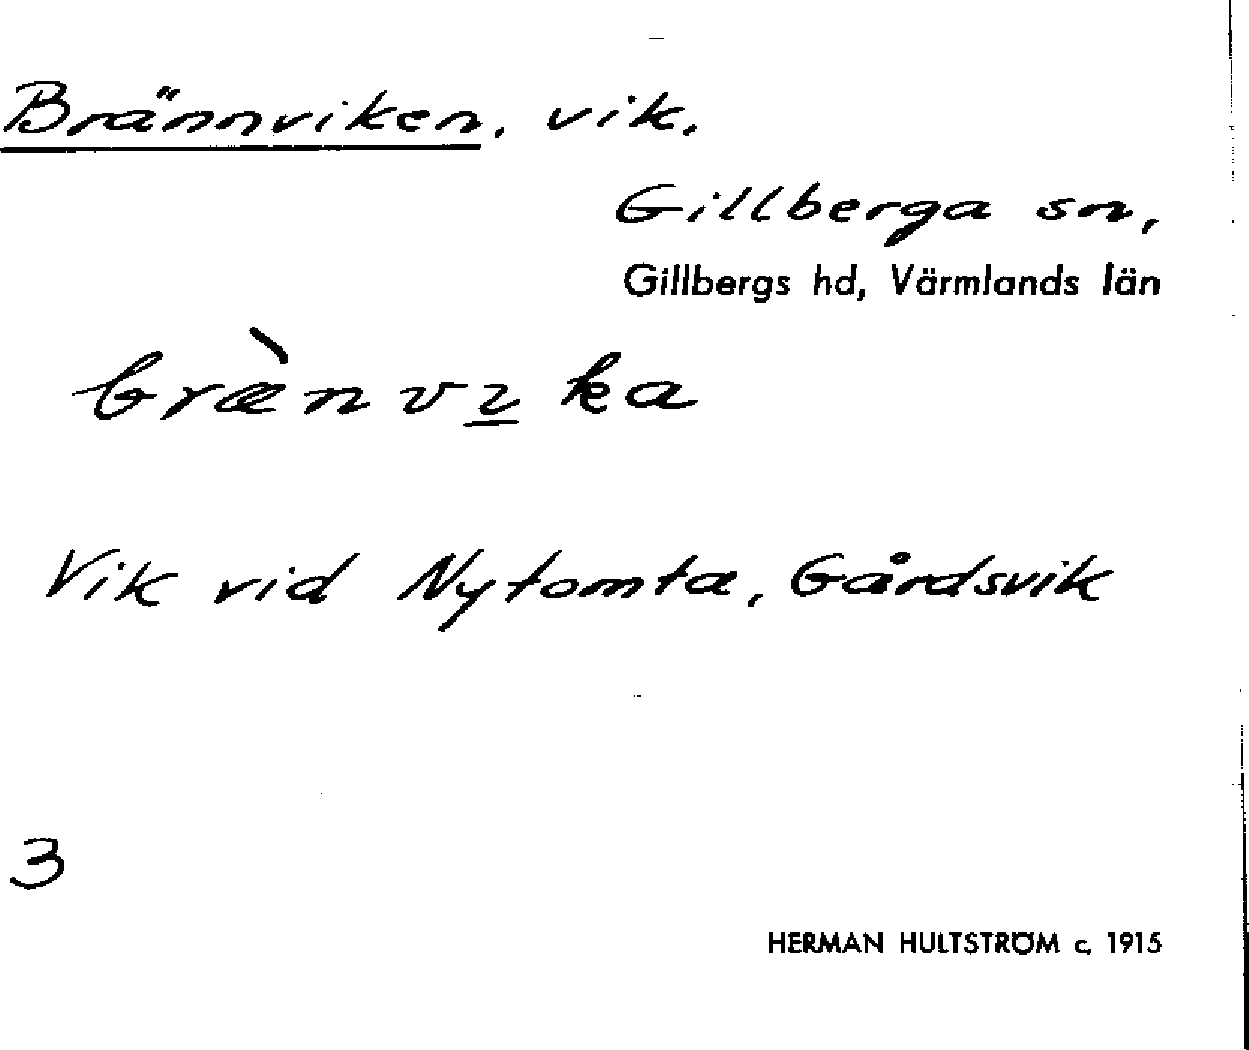 Brännviken, vik.
Gillberga sn,
Gillbergs hd, Värmlands län
bræ̀nvɪ̲ka
Vik vid Nytomta, Gårdsvik
3
HERMAN HULTSTRÖM c. 1915